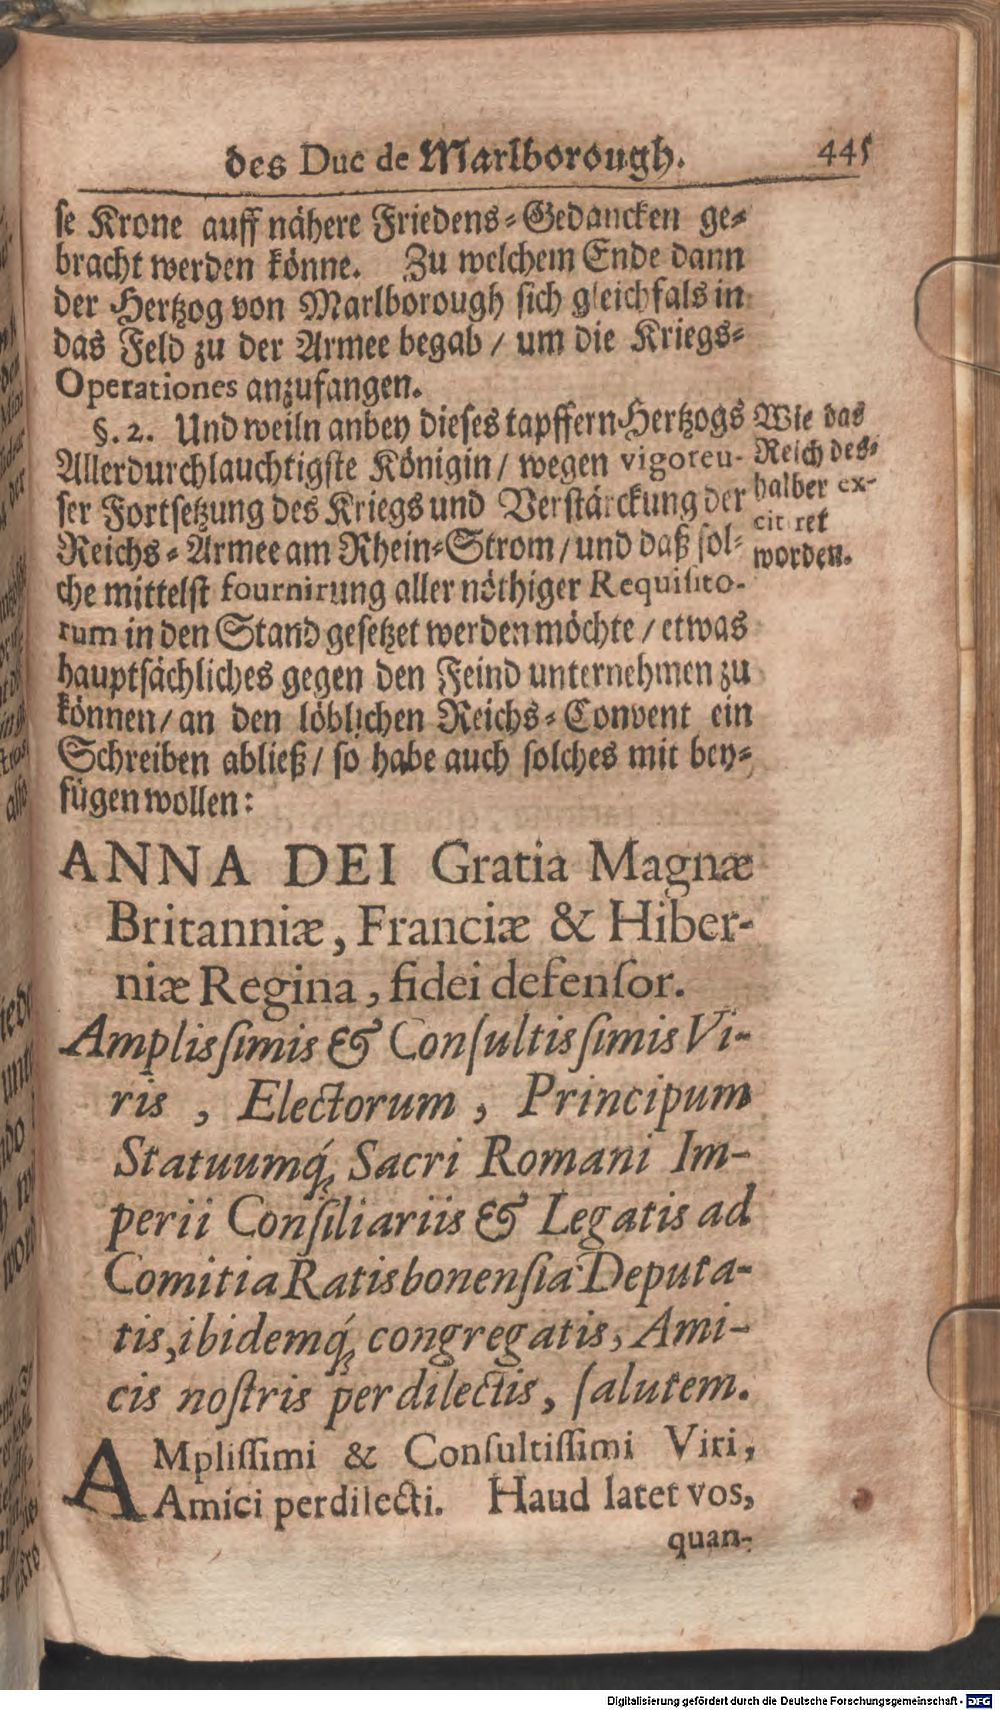 des Duc de Marlborough. 445
se Krone auff nähere Friedens-Gedancken ge-
bracht werden könne. Zu welchem Ende dann
der Hertzog von Marlborough sich gleichfals in
das Feld zu der Armee begab / um die Kriegs-
Operationes anzufangen.
§. 2. Und weiln anbey dieses tapffern Hertzogs
Allerdurchlauchtigste Königin / wegen vigoreu-
ser Fortsetzung des Kriegs und Verstärckung der
Reichs-Armee am Rhein-Strom / und daß sol-
che mittelst fournirung aller nöthiger Requisito-
rum in den Stand gesetzet werden möchte / etwas
hauptsächliches gegen den Feind unternehmen zu
können / an den löblichen Reichs-Convent ein
Schreiben abließ / so habe auch solches mit bey-
fügen wollen:
Wie das
Reich des-
halber ex-
citiret
worden.
ANNA DEI Gratia Magnæ
Britanniæ, Franciæ & Hiber-
niæ Regina, fidei defenſor.
Amplisſimis & Conſultisſimis Vi-
ris, Electorum, Principum
Statuumq́; Sacri Romani Im-
perii Conſiliariis & Legatis ad
Comitia Ratisbonenſia Deputa-
tis, ibidemq́; congregatis, Ami-
cis noſtris perdilectis, ſalutem.
AMpliſſimi & Conſultiſſimi Viri,
Amici perdilecti. Haud latet vos,
quan-
Digitalisierung gefördert durch die Deutsche Forschungsgemeinschaft - DFG